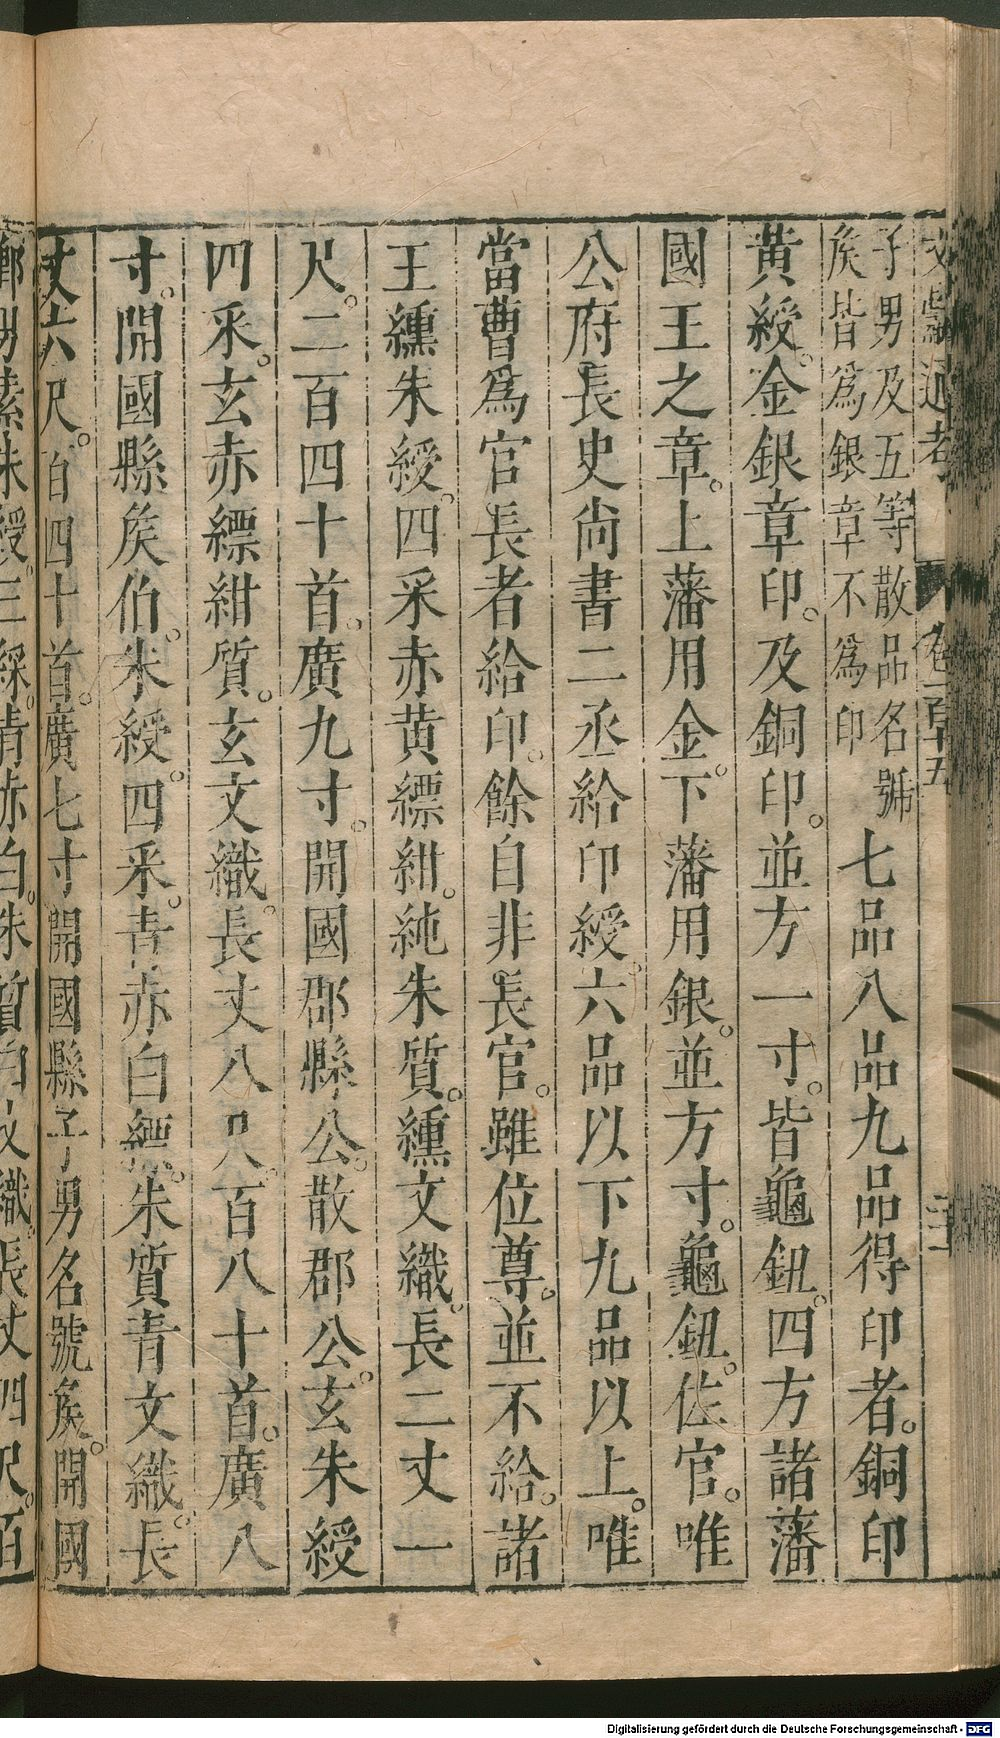 文獻通考 卷一百十五
子男及五等散品名號
矦皆爲銀章不爲印
七品八品九品得印者。銅印
黃綬。金銀章印。及銅印。並方一寸。皆龜鈕。四方諸藩
國王之章。上藩用金。下藩用銀。並方寸。龜鈕。佐官。唯
公府長史尚書二丞給印綬。六品以下九品以上。唯
當曹爲官長者給印。餘自非長官。雖位尊。並不給。諸
王纁朱綬。四采赤黃縹紺。純朱質。纁文織。長二丈一
尺。二百四十首。廣九寸。開國郡縣公。散郡公。玄朱綬
四采。玄赤縹紺質。玄文織。長丈八尺。百八十首。廣八
寸。開國縣矦伯。朱綬。四采。青赤白縹。朱質青文織。長
丈六尺。百四十首。廣七寸開國縣子男名號矦。開國
鄉男素朱綬。三綵。青赤白。朱質白文織。長丈四尺。百
Digitalisierung gefördert durch die Deutsche Forschungsgemeinschaft - DFG